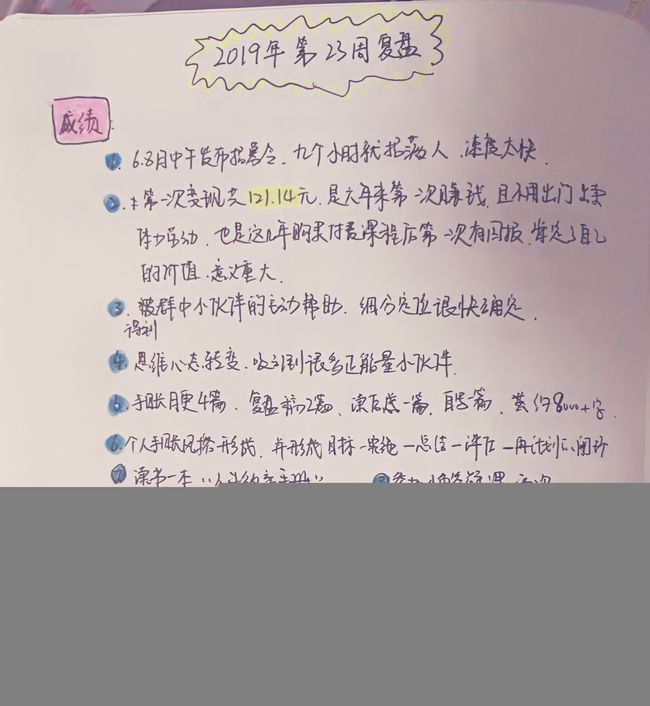 2019年第23周复盘
成绩:
1. 6.8月中午发布招募令、九个小时就招满人、速度太快
2. 第一次变现共121.14元.是六年来第一次赚钱.且不用出门上卖
体力劳动、也是这几年购买付费课程后第一次有回报.肯定了自己
的价值.意义重大.
3. 群中小伙伴的主动帮助.细分定位很快确定.
得到
4. 思维心态转变.吸引到很多正能量小伙伴.
5. 手账月更4篇、复盘2篇、读后感一篇、自一篇、共约8000+字.
6. 个人手账风格形成.并形成目标—实施—总结—评估—再计划闭环
⑦ 读书一本